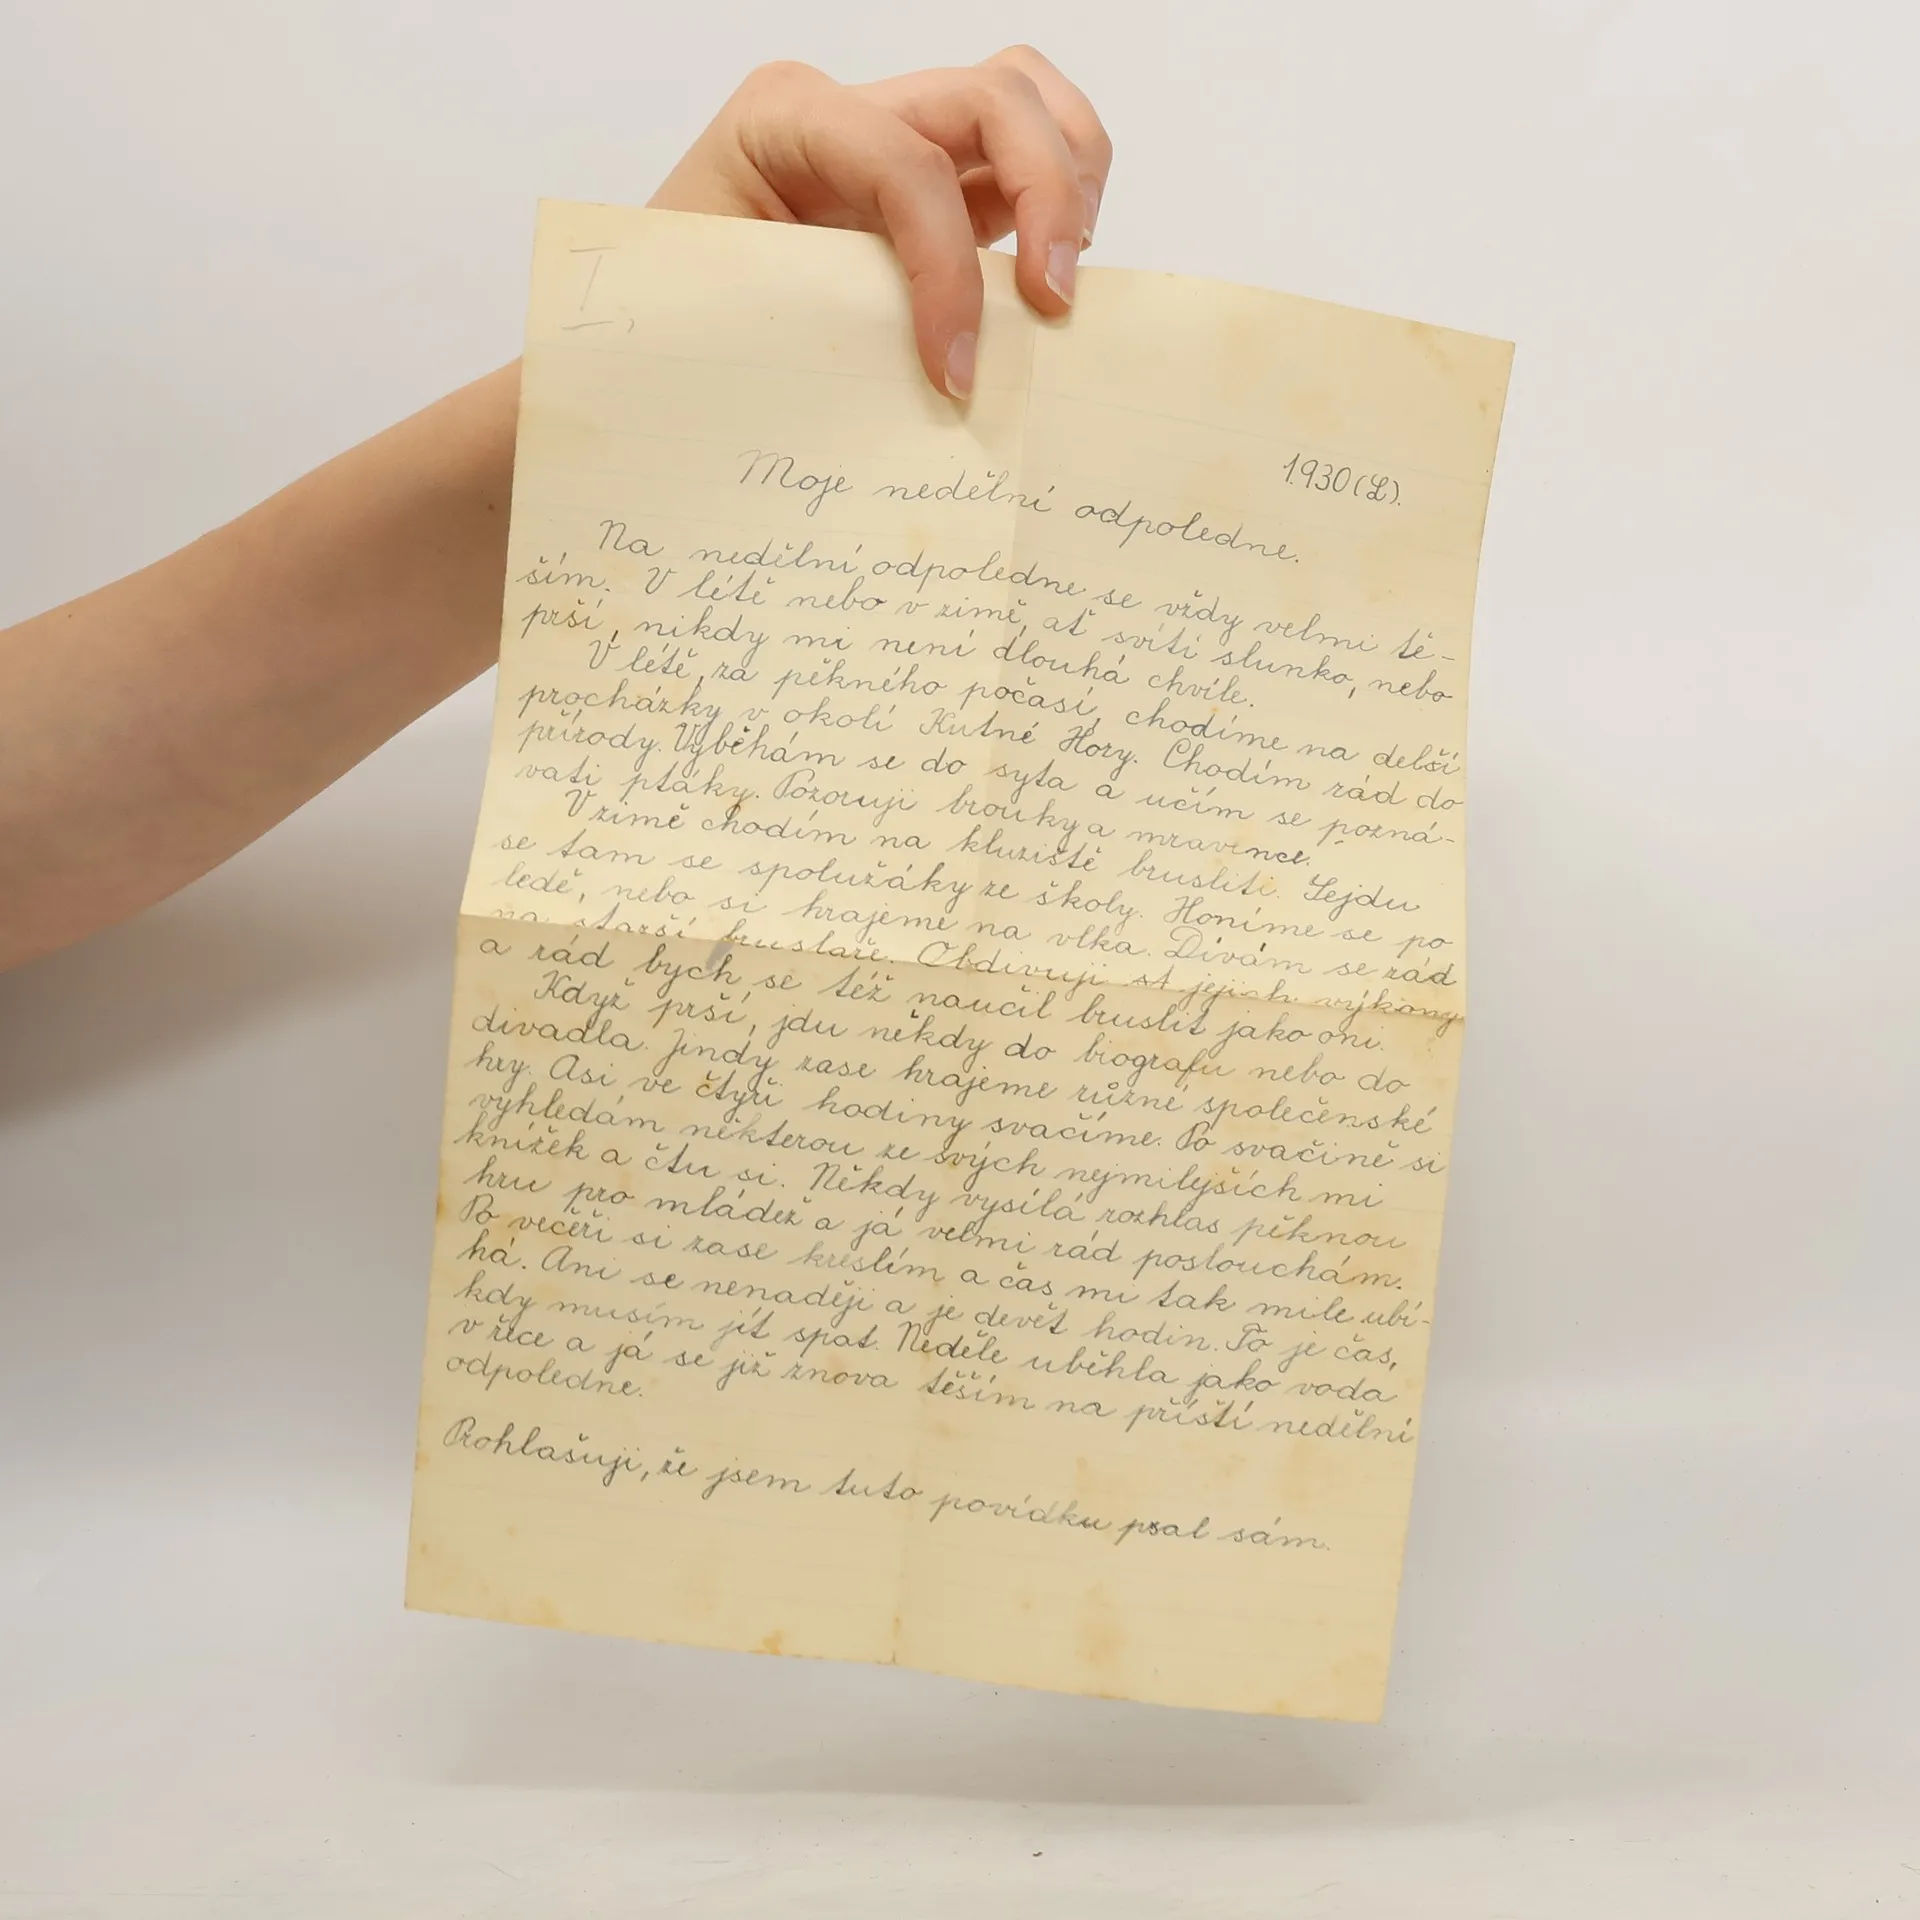 I,
1930 (L).
Moje nedělní odpoledne.
Na nedělní odpoledne se vždy velmi tě-
ším. V létě nebo v zimě, ať svítí slunko, nebo
prší, nikdy mi není dlouhá chvíle.
V létě, za pěkného počasí, chodíme na delší
procházky v okolí Kutné Hory. Chodím rád do
přírody. Vyběhám se do syta a učím se pozná-
vati ptáky. Pozoruji brouky a mravence.
V zimě chodím na kluziště brusliti. Sejdu
se tam se spolužáky ze školy. Honíme se po
ledě, nebo si hrajeme na vlka. Dívám se rád
na starší bruslaře. Obdivuji jejich výkony
a rád bych se též naučil bruslit jako oni.
Když prší, jdu někdy do biografu nebo do
divadla. Jindy zase hrajeme různé společenské
hry. Asi ve čtyři hodiny svačíme. Po svačině si
vyhledám některou ze svých nejmilejších mi
knížek a čtu si. Někdy vysílá rozhlas pěknou
hru pro mládež a já velmi rád poslouchám.
Po večeři si zase kreslím a čas mi tak mile ubí-
há. Ani se nenaději a je devět hodin. To je čas,
kdy musím jít spat. Neděle uběhla jako voda
v řece a já se již znova těším na příští nedělní
odpoledne.
Prohlašuji, že jsem tuto povídku psal sám.